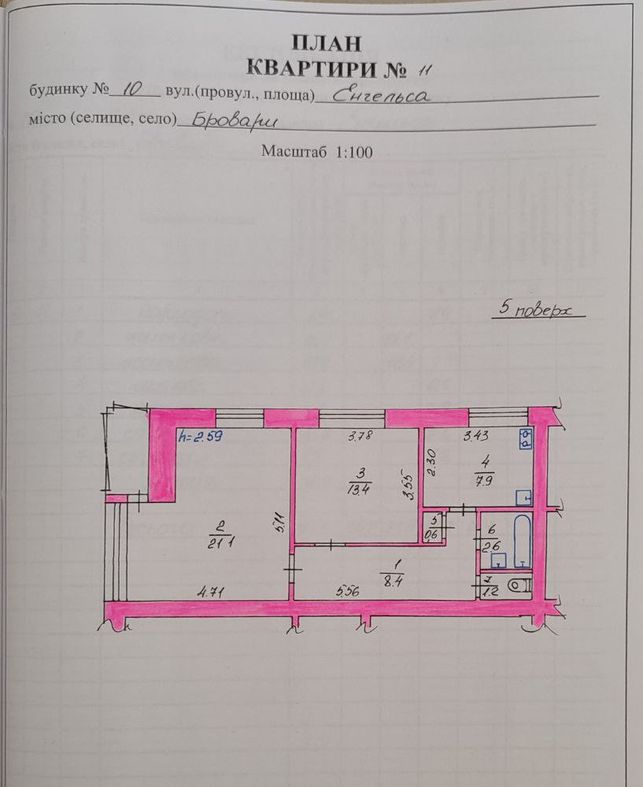 ПЛАН
КВАРТИРИ № 11
будинку № 10 вул.(провул., площа) Енгельса
місто (селище, село) Бровари
Масштаб 1:100
5 поверх
h=2.59
3.78
3.43
2.30
4
7.9
3
13.4
3.55
2
21.1
5.11
5
0.6
6
2.6
1
8.4
7
1.2
4.71
5.56